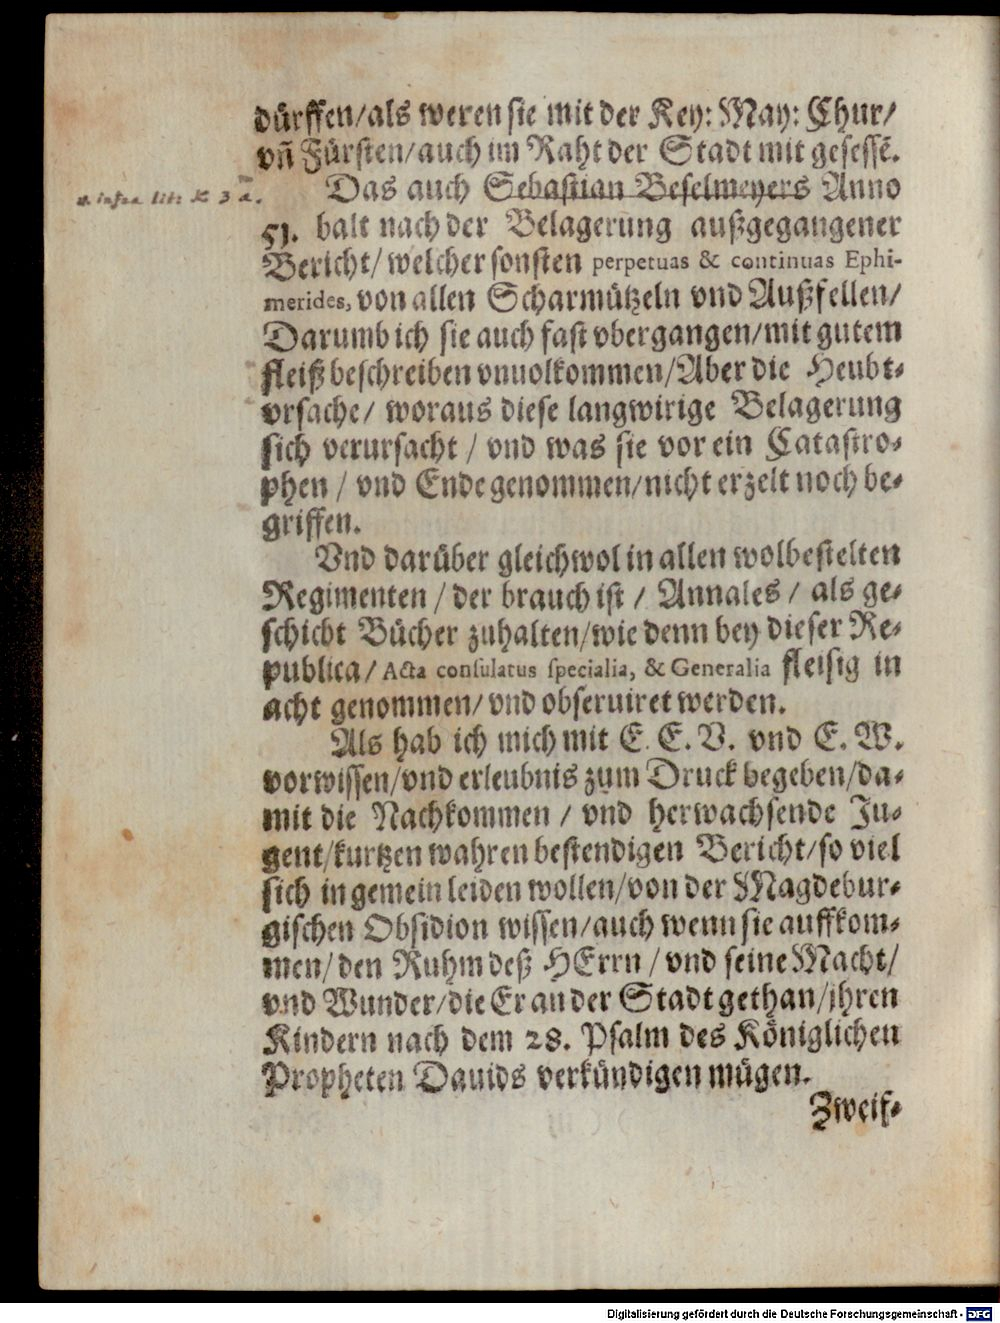 dürffen/als weren sie mit der Key: May: Chur/
vñ Fürsten/auch im Raht der Stadt mit gesessē.
Das auch Sebastian Beselmeyers Anno
51. balt nach der Belagerung außgegangener
Bericht/ welcher sonsten perpetuas & continuas Ephi-
merides, von allen Scharmützeln vnd Außfellen/
Darumb ich sie auch fast vbergangen/mit gutem
fleiß beschreiben vnuolkommen/Aber die Heubt-
vrsache/ woraus diese langwirige Belagerung
sich verursacht / vnd was sie vor ein Catastro-
phen / vnd Ende genommen/nicht erzelt noch be-
griffen.
Vnd darüber gleichwol in allen wolbestelten
Regimenten / der brauch ist / Annales / als ge-
schicht Bücher zuhalten/wie denn bey dieser Re-
publica/ Acta consulatus specialia, & Generalia fleisig in
acht genommen/ vnd obseruiret werden.
Als hab ich mich mit E. E. V. vnd E. W.
vorwissen/vnd erleubnis zum Druck begeben/da-
mit die Nachkommen / vnd herwachsende Ju-
gent/kurtzen wahren bestendigen Bericht/so viel
sich in gemein leiden wollen/von der Magdebur-
gischen Obsidion wissen/auch wenn sie auffkom-
men/den Ruhm deß HErrn / vnd seine Macht/
vnd Wunder/die Er an der Stadt gethan/ihren
Kindern nach dem 28. Psalm des Königlichen
Propheten Dauids verkündigen mügen.
Zweif-
v. infra lit: K 3 a.
Digitalisierung gefördert durch die Deutsche Forschungsgemeinschaft - DFG